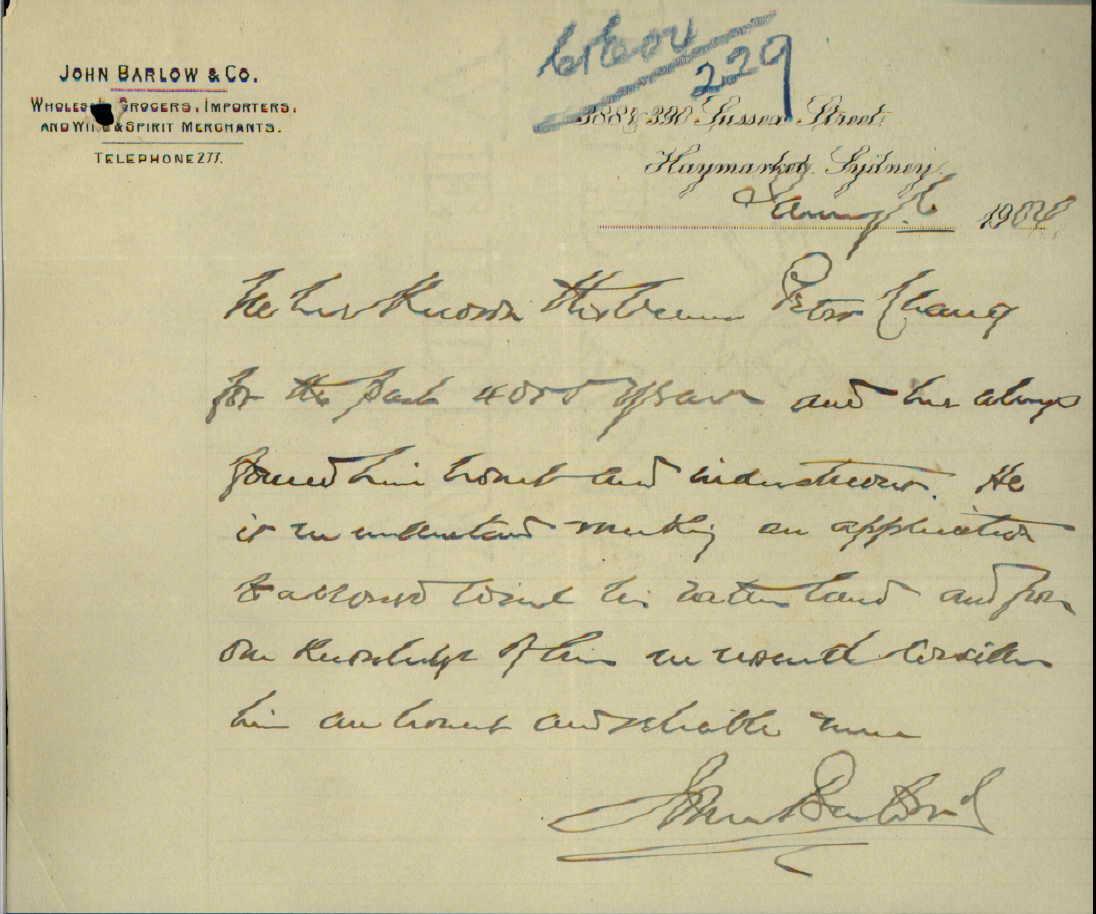 JOHN BARLOW & CO.
WHOLESALE GROCERS, IMPORTERS,
AND WINE & SPIRIT MERCHANTS.
TELEPHONE 277.
229
388 & 390 Sussex Street,
Haymarket, Sydney,
190
We have known the bearer Peter
for the past 4 or 5 years and have always
found him honest and industrious. He
is we understand making an application
to allowed visit his native land and from
our knowledge of him we would consider
him an honest and reliable man
John Barlow